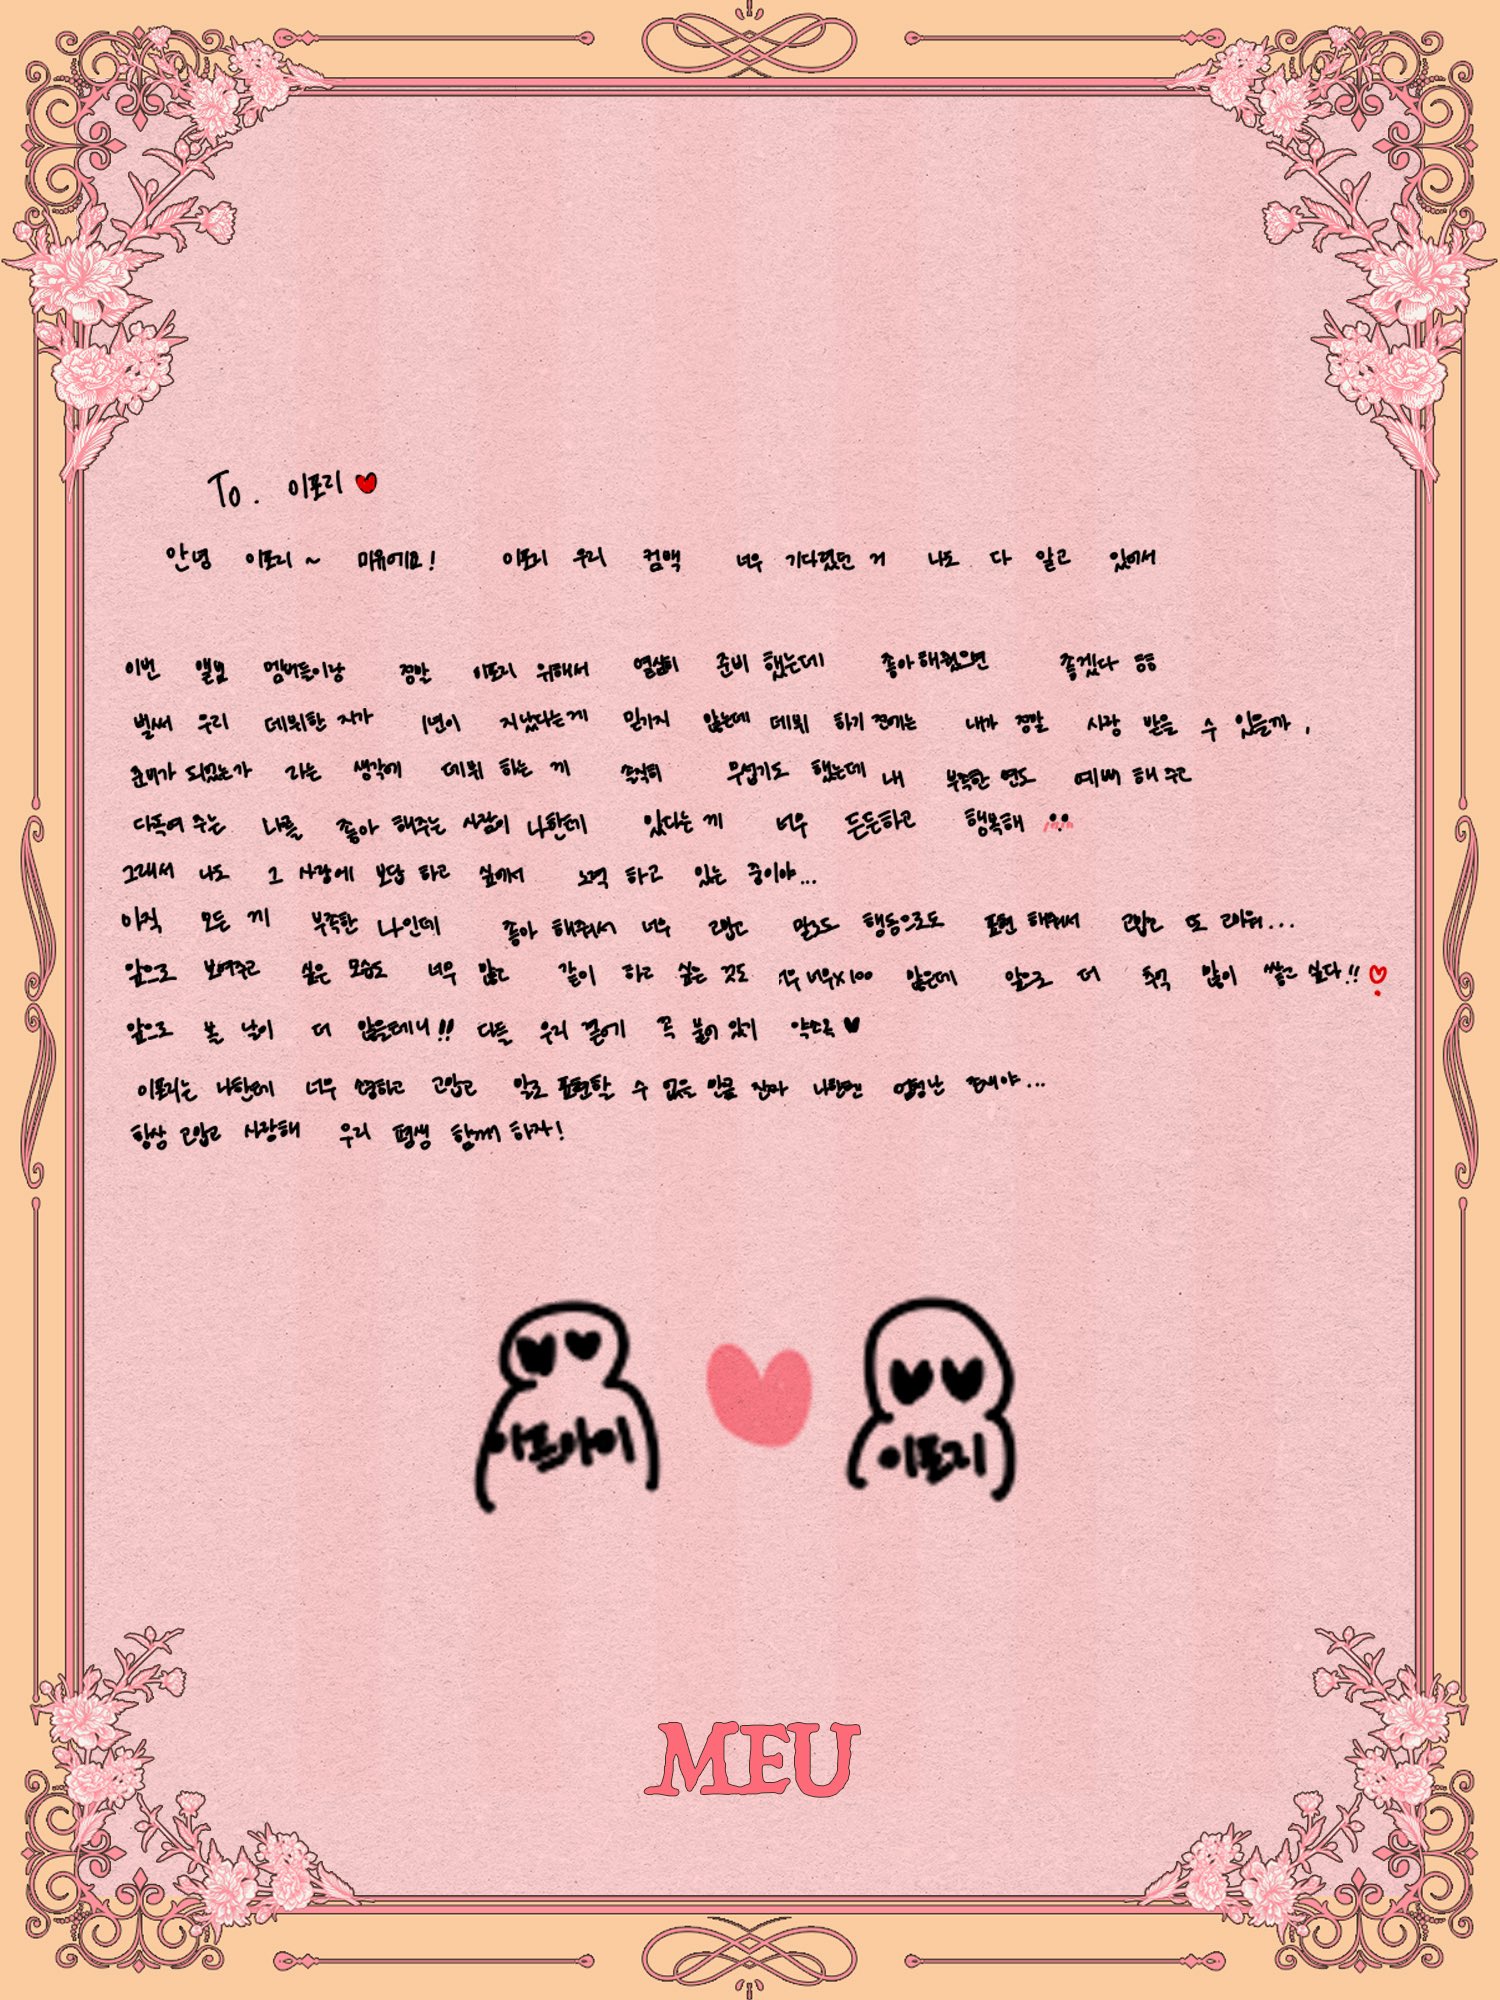 To. 이포리
안녕 이포리~ 미유에요! 이포리 우리 컴백 너무 기다렸던 거 나도 다 알고 있어서
이번 앨범 멤버들이랑 정말 이포리 위해서 열심히 준비 했는데 좋아해줬으면 좋겠다 ㅎㅎ
벌써 우리 데뷔한 지가 1년이 지났다는게 믿기지 않는데 데뷔 하기 전에는 내가 정말 사랑 받을 수 있을까,
준비가 되었는가 라는 생각에 데뷔 하는 게 솔직히 무섭기도 했는데 내 부족한 면도 예뻐 해 주고
다독여 주는 나를 좋아 해주는 사람이 나한테 있다는 게 너무 든든하고 행복해
그래서 나도 그 사랑에 보답 하고 싶어서 노력 하고 있는 중이야...
아직 모든 게 부족한 나인데 좋아 해줘서 너무 고맙고 말로도 행동으로도 표현 해줘서 고맙고 또 고마워...
앞으로 보여주고 싶은 모습도 너무 많고 같이 하고 싶은 것도 너무 너무x100 많은데 앞으로 더 추억 많이 쌓고 싶다!!
앞으로 볼 날이 더 많을테니!! 다들 우리 곁에 꼭 붙어 있기 약속
이포리는 나한테 너무 소중하고 고맙고 말로 표현할 수 없을 만큼 진짜 나한텐 엄청난 존재야...
항상 고맙고 사랑해 우리 평생 함께 하자!
이프아이 이포리
MEU